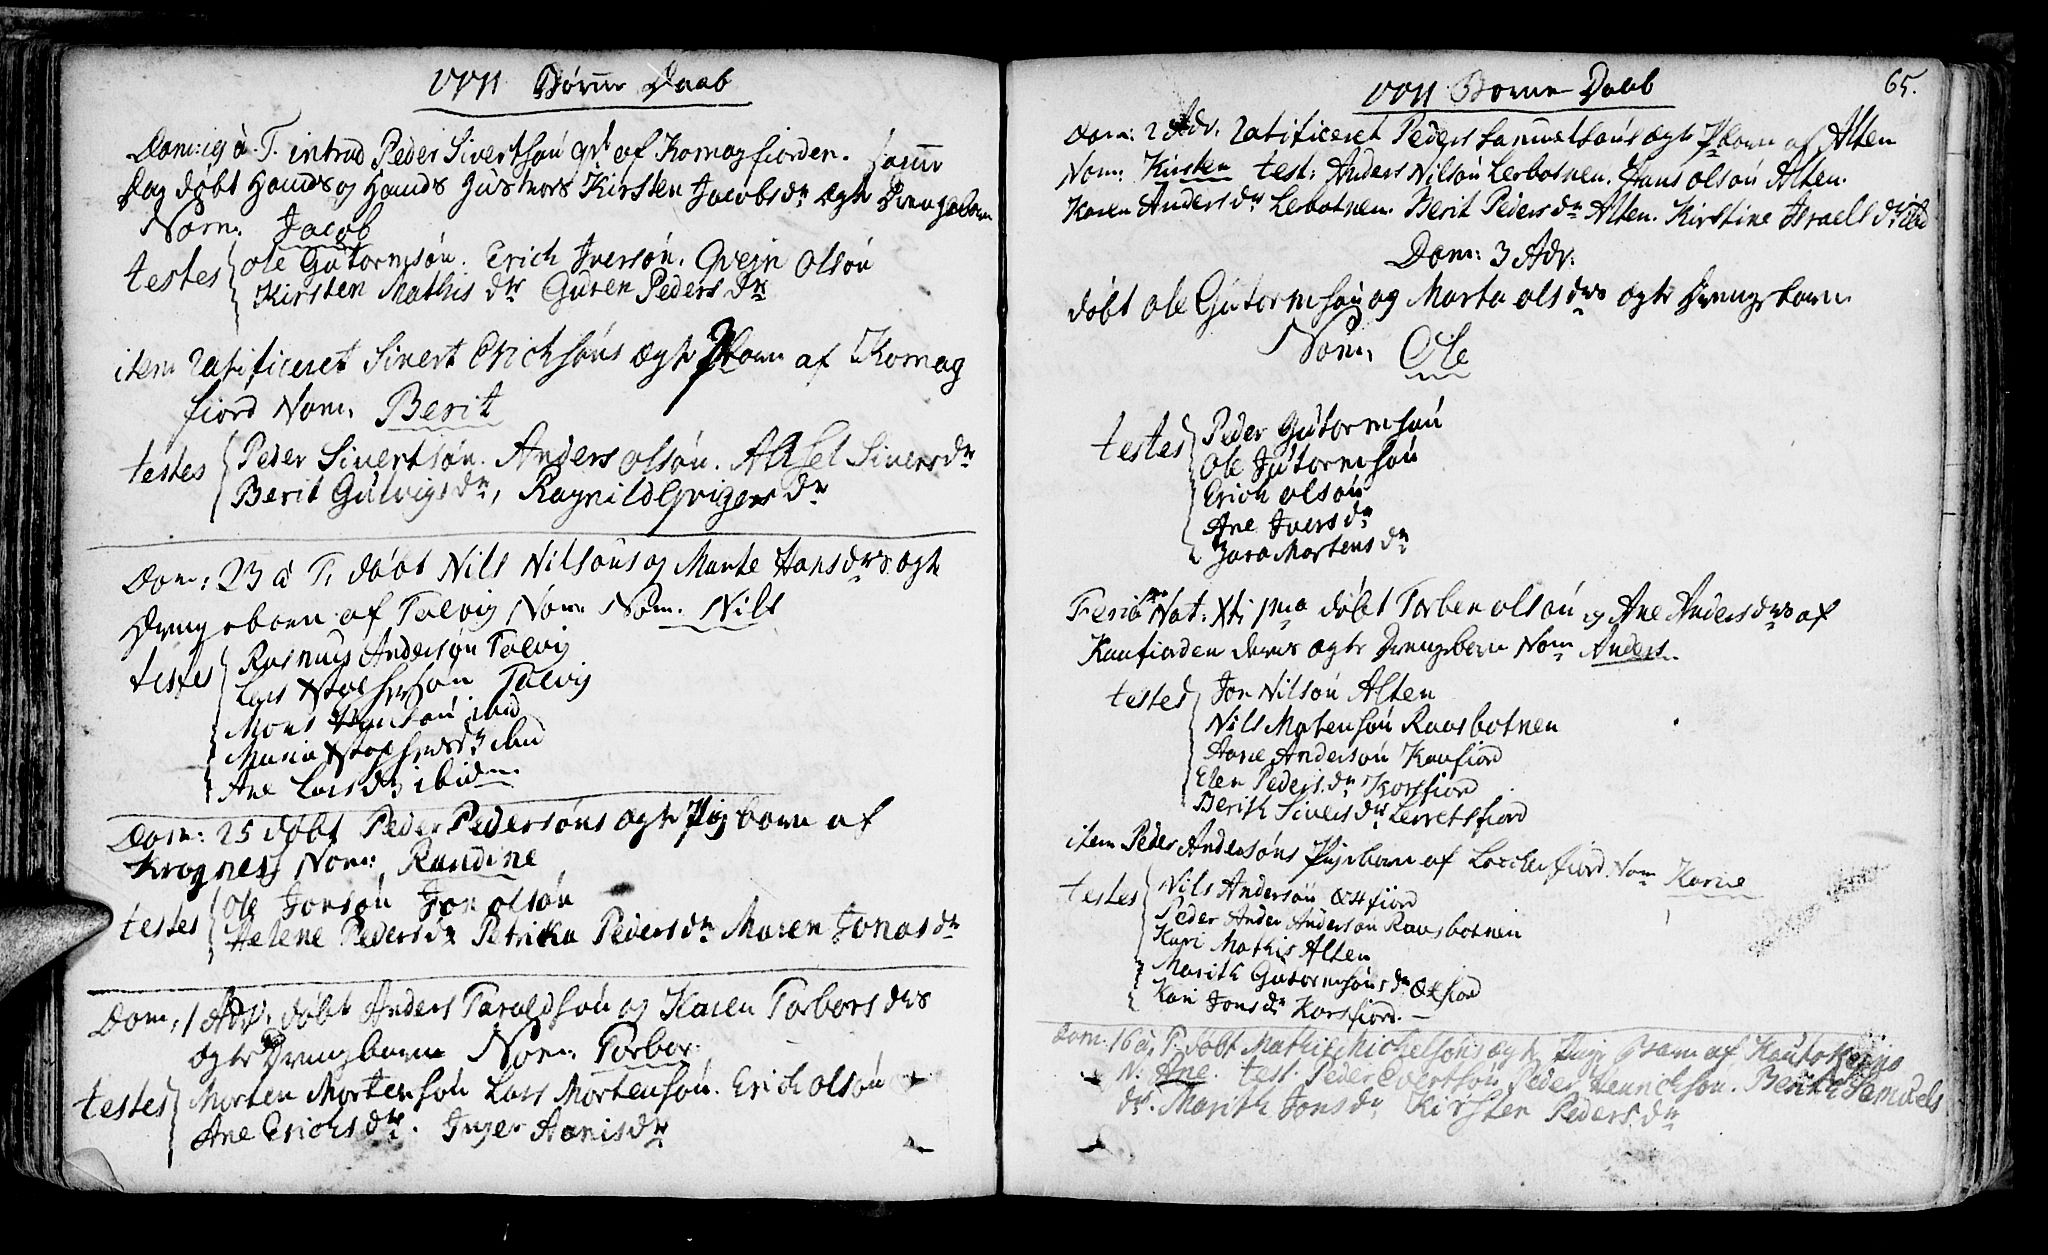 1771 Børne Daab
Dom: 19 à T. introd Peder Sivertsøn qvl af Komagfiorden. samme
Dag døbt Hands og Hands Hustrues Kirsten Jacobsdr ægte Drengebarn
Nom: Jacob
testes Ole Gutormsøn. Erich Iversøn. Qvejn Olsøn
Kirsten Mathisdr Guren Pedersdr
item ratificeret Sivert Erichsøns ægte P barn af Komag
fiord Nom. Berit
testes Peder Sivertsøn. Anders Olsøn. Aksel Siversdr
Berit Gulvigsdr, Ragnild
Dom: 23 à T. døbt Nils Nilsøns og Marite Hansdrs ægte
Drengebarn af Talvig Nom Nom. Nils
testes Rasmus Andersøn Talvig
Lars Xstophersøn Talvig
Mons Hansøn ibid
Maria Xstophersdr ibid
Ane Larsdr ibidem.
Dom: 25 døbt Peder Pedersøns ægte Pig barn af
Kragnes Nom: Randine
testes Ole Jonsøn Jon Olsøn
Helene Pedersdr Petrika Pedersdr Maren Jonasdr
Dom: 1 Adv: døbt Anders Taraldsøn og Karen Torbersdrs
ægte Drengbarn Nom: Torber
testes Morten Mortensøn Lars Mortensøn. Erich Olsøn
Ane Erichsdtr. Inger Aanisdr
1771 Børne Daab 65.
Dom: 2 Adv. ratificeret Peder Samuelsøns ægte P barn af Alten
Nom: Kirsten test: Anders Nilsøn Lerbotnen. Hans Olsøn Alten.
Karen Andersdr Lerbotnen. Berit Pedersdr Alten. Kirstine Israelsdr ibid
Dom: 3 Adv:
døbt Ole Gutormsøn og Marta Olsdrs ægte Drengebarn
Nom: Ole
testes Peder Gutormsøn
Ole Gutormsøn
Erich Olsøn
Ane Iversdr
Zara Mortensdr
Feria Nat: Xti 1ma døbt Torben Olsøn og Ane Andersdrs af
Kaafiorden deres ægte Drengebarn Nom Anders.
testes Jon Nilsøn Alten
Nils Matensøn Raasbotnen
Aane Andersøn Kaafiord
Elen Pedersdr Korsfiord
Berith Siversdr Lerretsfiord
item Peder Andersøns Pigebarn af Nom Karne
testes Nils Andersøn Øxfiord
Peder Ander Andersøn Raasbotnen
Kari Mathis Alten
Marith Gutormsønsdr Øxfiord
Kari Jonsdr Korsfiord.
Dom. 16 à T. døbt Mathis Michelsøns ægte Pige Barn af Kautokejno
N: Ane. test. Peder Evertsøn Peder Henrichsøn. Berith Samuels
dr. Marith Jonsdr Kirsten Pedersdr